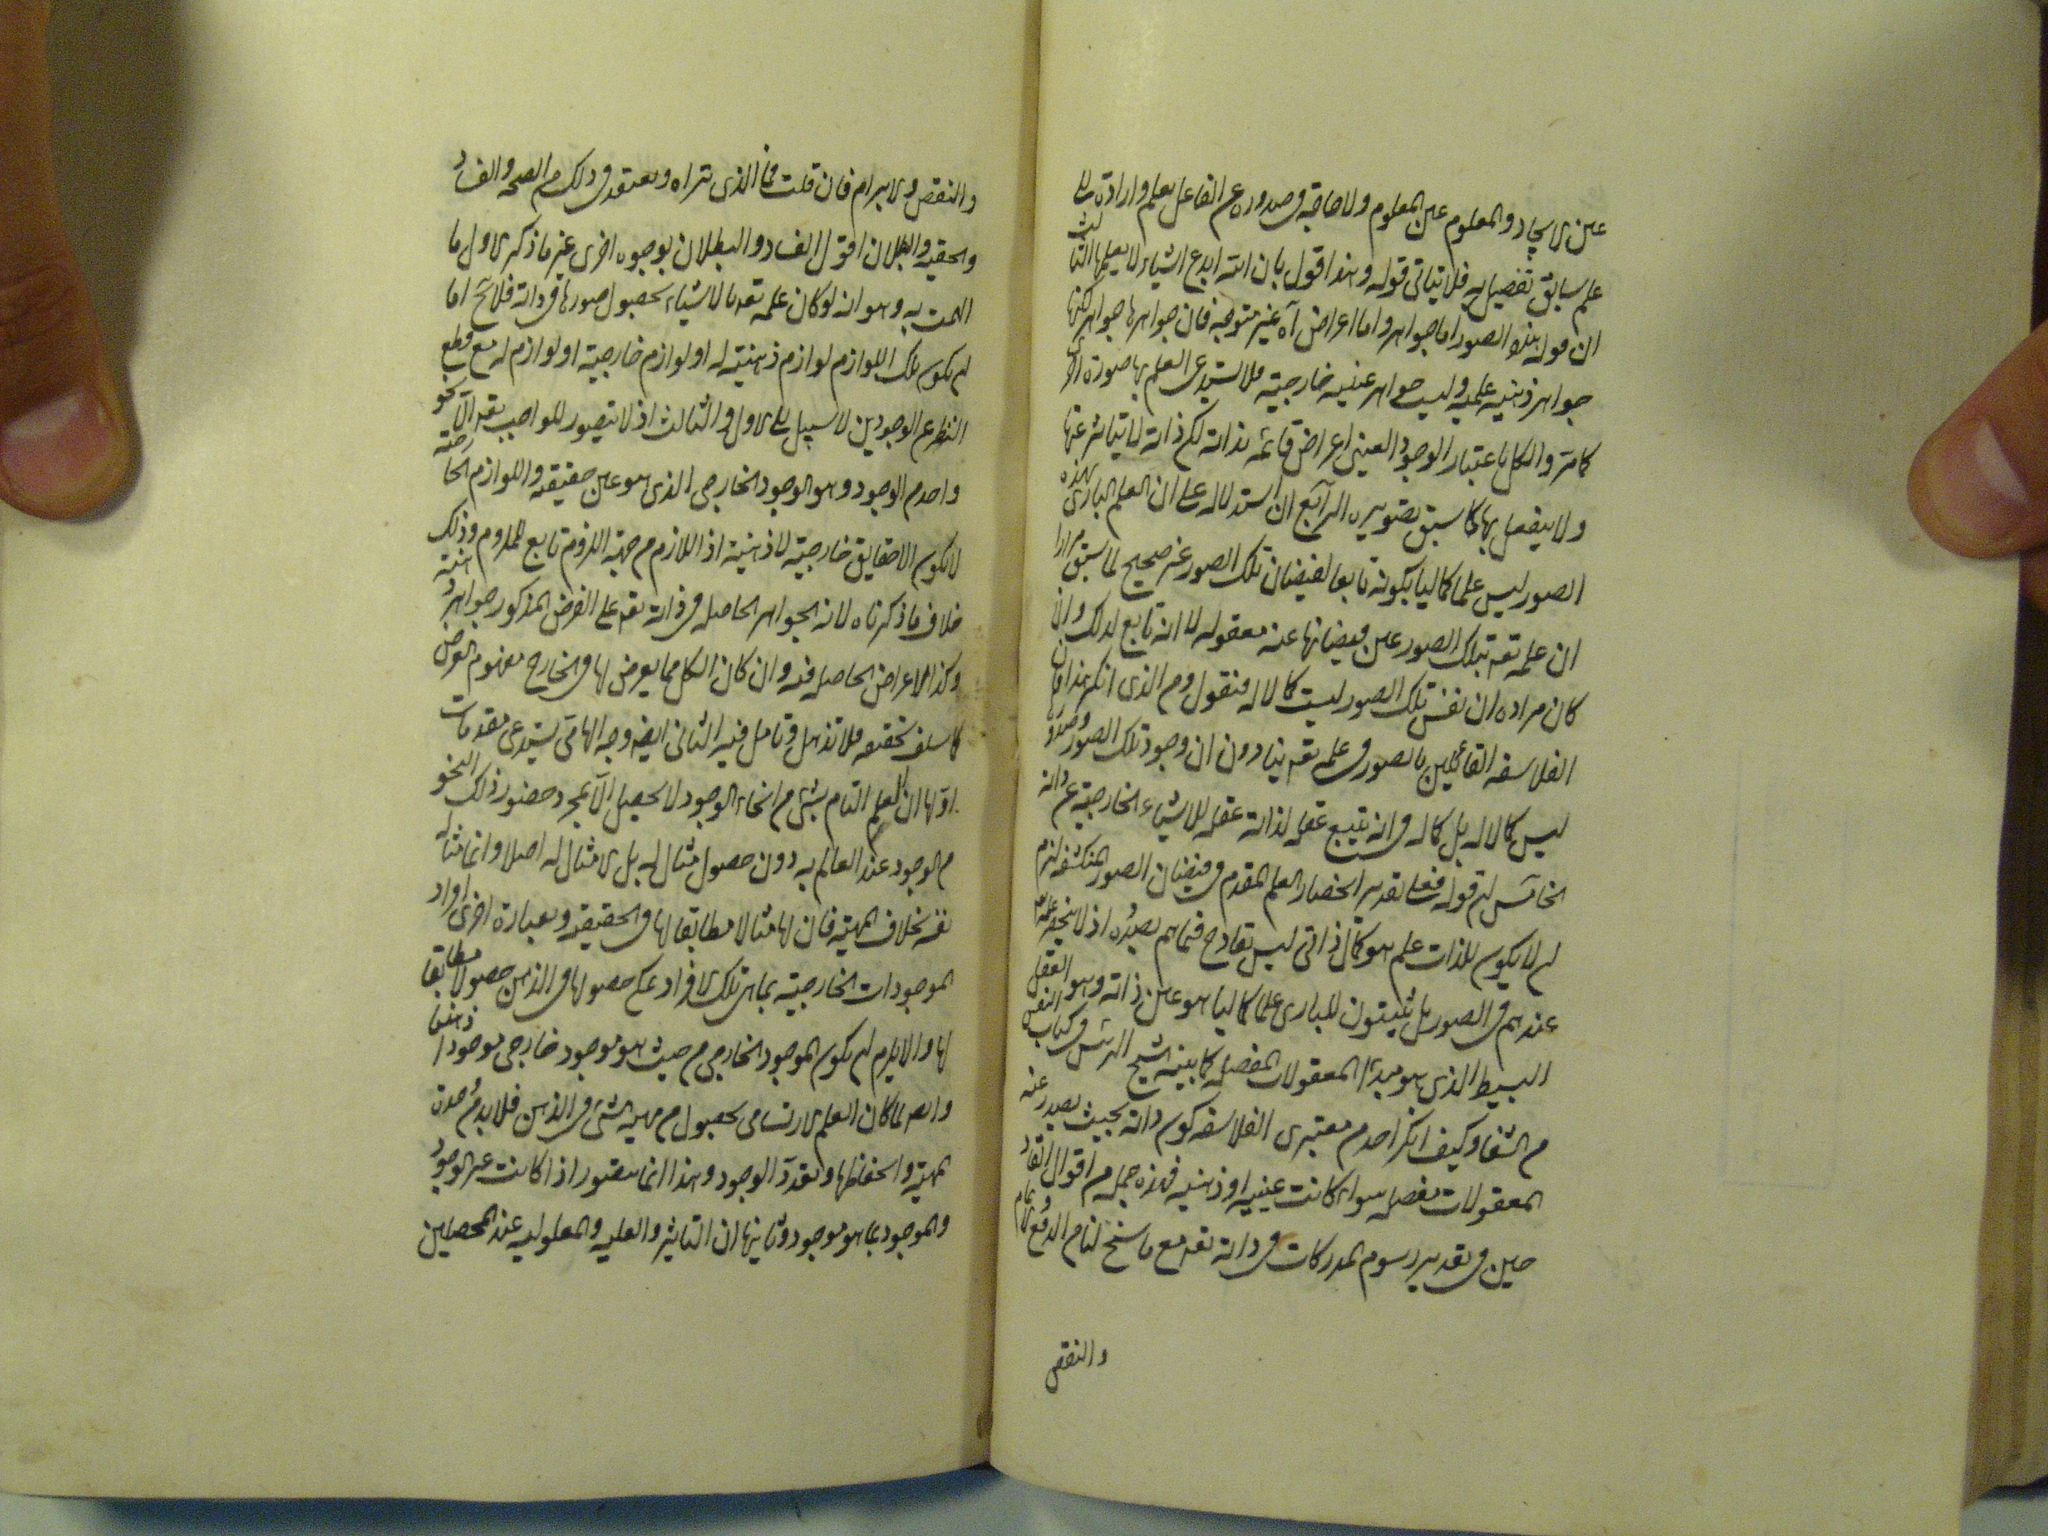 عين الايجاد والمعلوم عين المعلوم ولا حاجة في صدوره عن الفاعل بعلم وارادة الى
علم سابق تفصيلي به فلا يتأتى قوله وهذا قول بان الله ابدع اشياء لا يعلمها الثالث
ان قوله هذه الصور اما جواهر واما اعراض آه غير متوجه فان جواهرها جواهر لكنها
جواهر ذهنية علمية وليست جواهر عينية خارجية فلا تستدعي العلم بها صورة اخرى
كما مر والكل باعتبار الوجود العيني اعراض قائمة بذاته لكن ذاته لا يتأثر عنها
ولا ينفعل بها كما سبق تصويره الرابع ان استدلاله على ان العلم الباري بهذه
الصور ليس علما كماليا بكونه تابعا لفيضان تلك الصور غير صحيح لما سبق مرارا
ان علمه تعه بتلك الصور عين فيضانها عنه معقولة لا انه تابع لذلك وان
كان مراده ان نفس تلك الصور ليست كمالا له فنقول ومن الذي انكر هذا فان
الفلاسفة القائلين بالصور في علمه تعه ينادون ان وجود تلك الصور وصدورها
ليس كمالا له بل كماله في انه يتبع عقله لذاته عقله للاشياء الخارجية عن ذاته
الخامس ان قوله فعلى تقدير انحصار العلم المقدم في فيضان الصور المنكشفة لزم
ان لا يكون للذات علم هو كمال ذاتي ليس بقادح فيما هم بصدده اذ لا ينحصر علمه تعه
عندهم في الصور بل يثبتون للباري علما كماليا هو عين ذاته وهو العقل
البسيط الذي هو مبدأ المعقولات المفصلة كما بينه الشيخ الرئيس في كتاب النفس
من الشفا وكيف انكر احد من معتبري الفلاسفة كون ذاته بحيث يصدر عنه
المعقولات مفصلة سواء كانت عينية او ذهنية فهذه جملة من اقوال القاد
حين في تقدير رسوم المدركات في ذاته تعه مع ما سنح لنا من الدفع والاتمام
والنقض
والنقض والابرام فان قلت فما الذي تراه وتعتقد في ذلك من الصحة والفساد
والحقية والبطلان اقول الفساد والبطلان بوجوه اخرى غير ما ذكر الاول ما
الهمت به وهو انه لو كان علمه تعه بالاشياء بحصول صورها في ذاته فلا يخ اما
ان يكون تلك اللوازم لوازم ذهنية له او لوازم خارجية او لوازم له مع قطع
النظر عن الوجودين لا سبيل الى الاول والثالث اذ لا يتصور للواجب تعه الا نحو
واحد من الوجود وهو الوجود الخارجي الذي هو عين حقيقته واللوازم الخارجية
لا تكون الا حقايق خارجية لا ذهنية اذ اللازم من جهة اللزوم تابع للملزوم وذلك
خلاف ما ذكرناه لانه الجواهر الحاصلة في ذاته تعه على الفرض المذكور جواهر ذهنية
وكذا الاعراض الحاصلة فيه وان كان الكل مما يعرض لها في الخارج مفهوم العرض
كما سلف تحقيقه فلا تذهل وتأمل فيه الثاني ايضه وجه الهامي يستدعي مقدمات
اولها ان العلم التام بشئ من انحاء الوجود لا يحصل الا بمجرد حضور ذلك النحو
من الوجود عند العالم به دون حصول مثال له بل لا مثال له اصلا وانما مثاله
نفسه بخلاف المهية فان لها مثالا مطابقا لها في الحقيقة وبعبارة اخرى افراد
الموجودات الخارجية بما هي تلك الافراد يمكن حصولها في الذهن حصولا مطابقا
لها والا يلزم ان يكون الموجود الخارجي من حيث هو موجود خارجي موجودا ذهنيا
وايضه لما كان العلم الارتسامي بحصول من مهية الشئ في الذهن فلا بد من وحدة
المهية وانحفاظها وتعدد الوجود وهذا انما يتصور اذا كانت غير الوجود
والموجود بما هو موجود وثانيها ان التأثير والعلية والمعلولية عند المحصلين